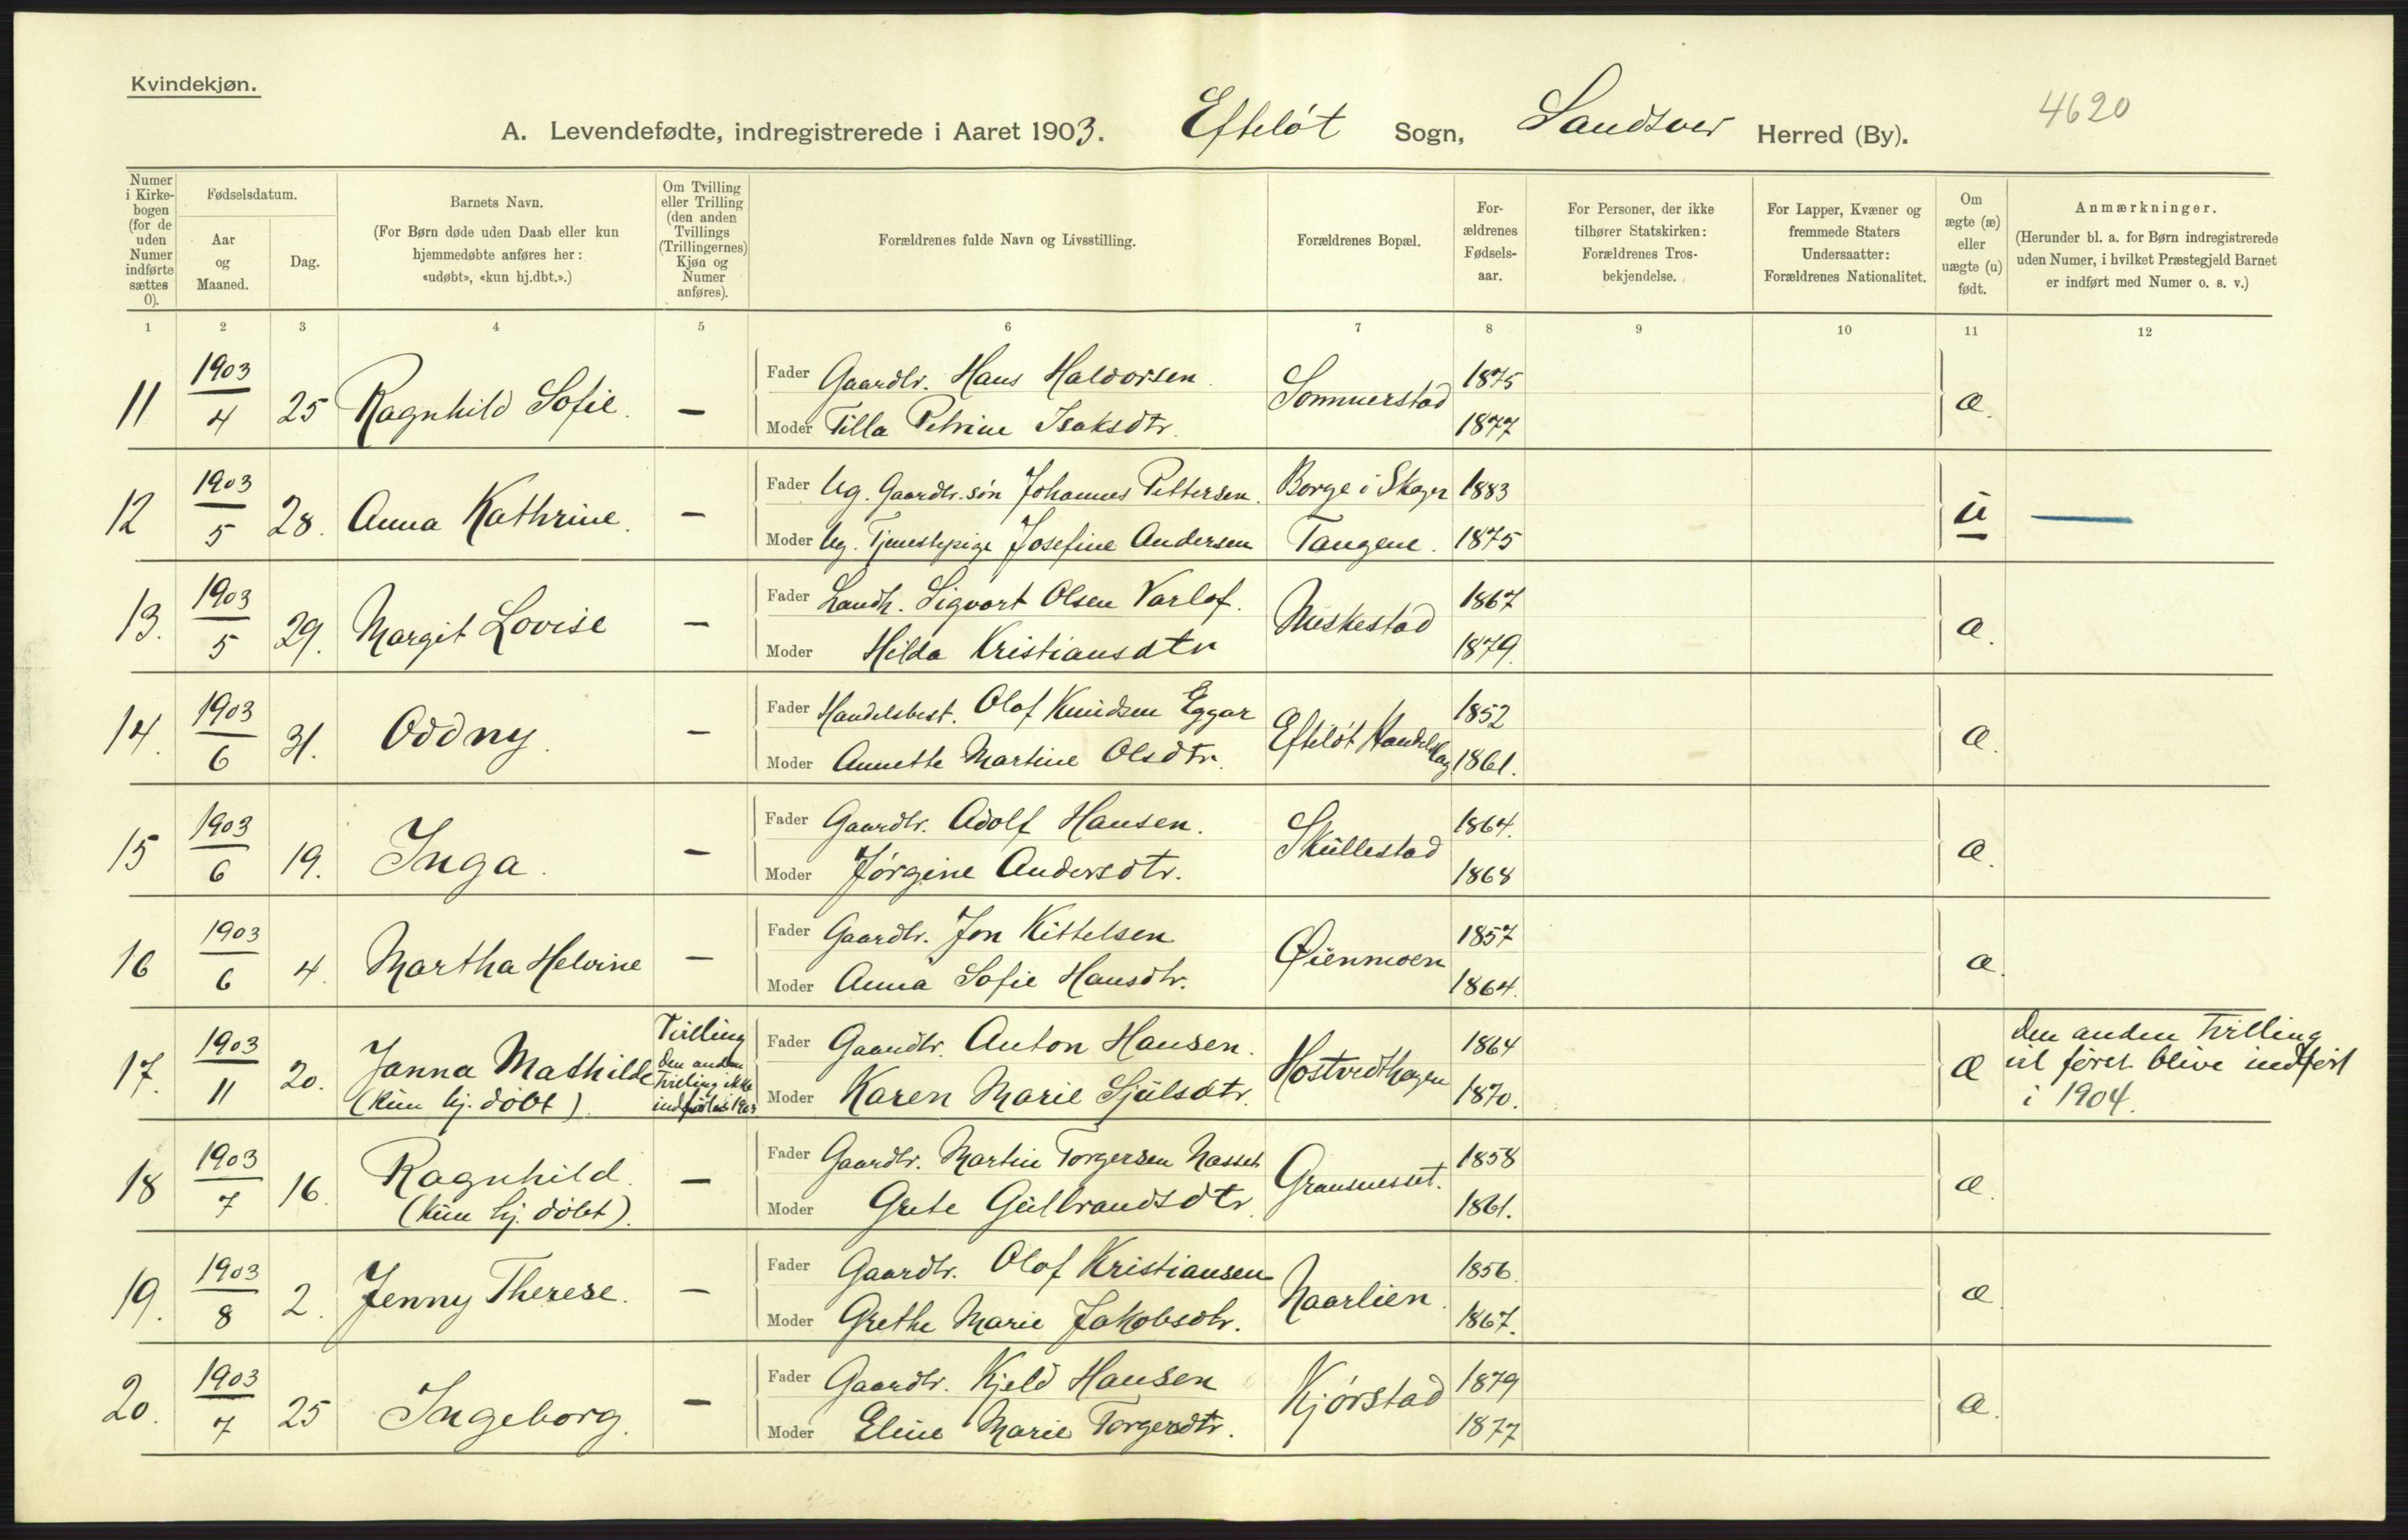 Kvindekjøn.
A. Levendefødte, indregistrerede i Aaret 1903. Efteløt Sogn, Sandsver Herred (By). 4620
Numer i Kirke-bogen (for de uden Numer indførte sættes 0).
Fødselsdatum.
Aar og Maaned.
Dag.
Barnets Navn.
(For Børn døde uden Daab eller kun hjemmedøbte anføres her: «udøbt», «kun hj.dbt.».)
Om Tvilling eller Trilling (den anden Tvillings (Trillingernes) Kjøn og Numer anføres).
Forældrenes fulde Navn og Livsstilling.
Forældrenes Bopæl.
For-ældrenes Fødsels-aar.
For Personer, der ikke tilhører Statskirken: Forældrenes Tros-bekjendelse.
For Lapper, Kvæner og fremmede Staters Undersaatter: Forældrenes Nationalitet.
Om ægte (æ) eller uægte (u) født.
Anmærkninger.
(Herunder bl. a. for Børn indregistrerede uden Numer, i hvilket Præstegjeld Barnet er indført med Numer o. s. v.)
1 2 3 4 5 6 7 8 9 10 11 12
11 1903/4 25 Ragnhild Sofie. — Fader Gaardbr. Hans Halvorsen. Sommerstad 1875 æ.
Moder Tilla Petrine Isaksdtr. 1877
12 1903/5 28. Anna Kathrine. — Fader Ug. Gaardbr. søn Johannes Pettersen. Borge i Skoger 1883 u —
Moder Ug. Tjenestepige Josefine Andersen Tangene. 1875
13. 1903/5 29. Margit Lovise — Fader Landh. Sigvart Olsen Varlof. Muskestad 1867 æ.
Moder Hilda Kristiansdtr 1879.
14. 1903/6 31. Oddny. — Fader Handelsbest. Olaf Knudsen Eggar Efteløt Handelslag 1852 æ.
Moder Annette Martine Olsdtr. 1861.
15 1903/6 19. Inga. — Fader Gaardbr. Adolf Hansen. Skullestad 1864. æ.
Moder Jørgine Andersdtr. 1868
16 1903/6 4. Martha Helvine — Fader Gaardbr. Jon Kittelsen Øienmoen 1857 æ.
Moder Anna Sofie Hansdtr. 1864.
17. 1903/11 20. Janna Mathilde (kun hj. døbt). Tvilling Den anden Tvilling ikke indført i 1903 Fader Gaardbr. Anton Hansen. Hostvedthagen 1864 æ Den anden Tvilling
Moder Karen Marie Sjulsdtr. 1870. vil først blive indført
i 1904.
18 1903/7 16. Ragnhild. (kun hj. døbt). — Fader Gaardbr. Martin Torgersen Gransnesset. 1858 æ.
Moder Grete Gulbrandsdtr. 1861.
19. 1903/8 2. Jenny Therese. — Fader Gaardbr. Olaf Kristiansen Naarlien. 1856. æ.
Moder Grethe Marie Jakobsdtr. 1867.
20. 1903/7 25 Ingeborg. — Fader Gaardbr. Kjeld Hansen Kjørstad 1879 æ.
Moder Eline Marie Torgersdtr. 1877